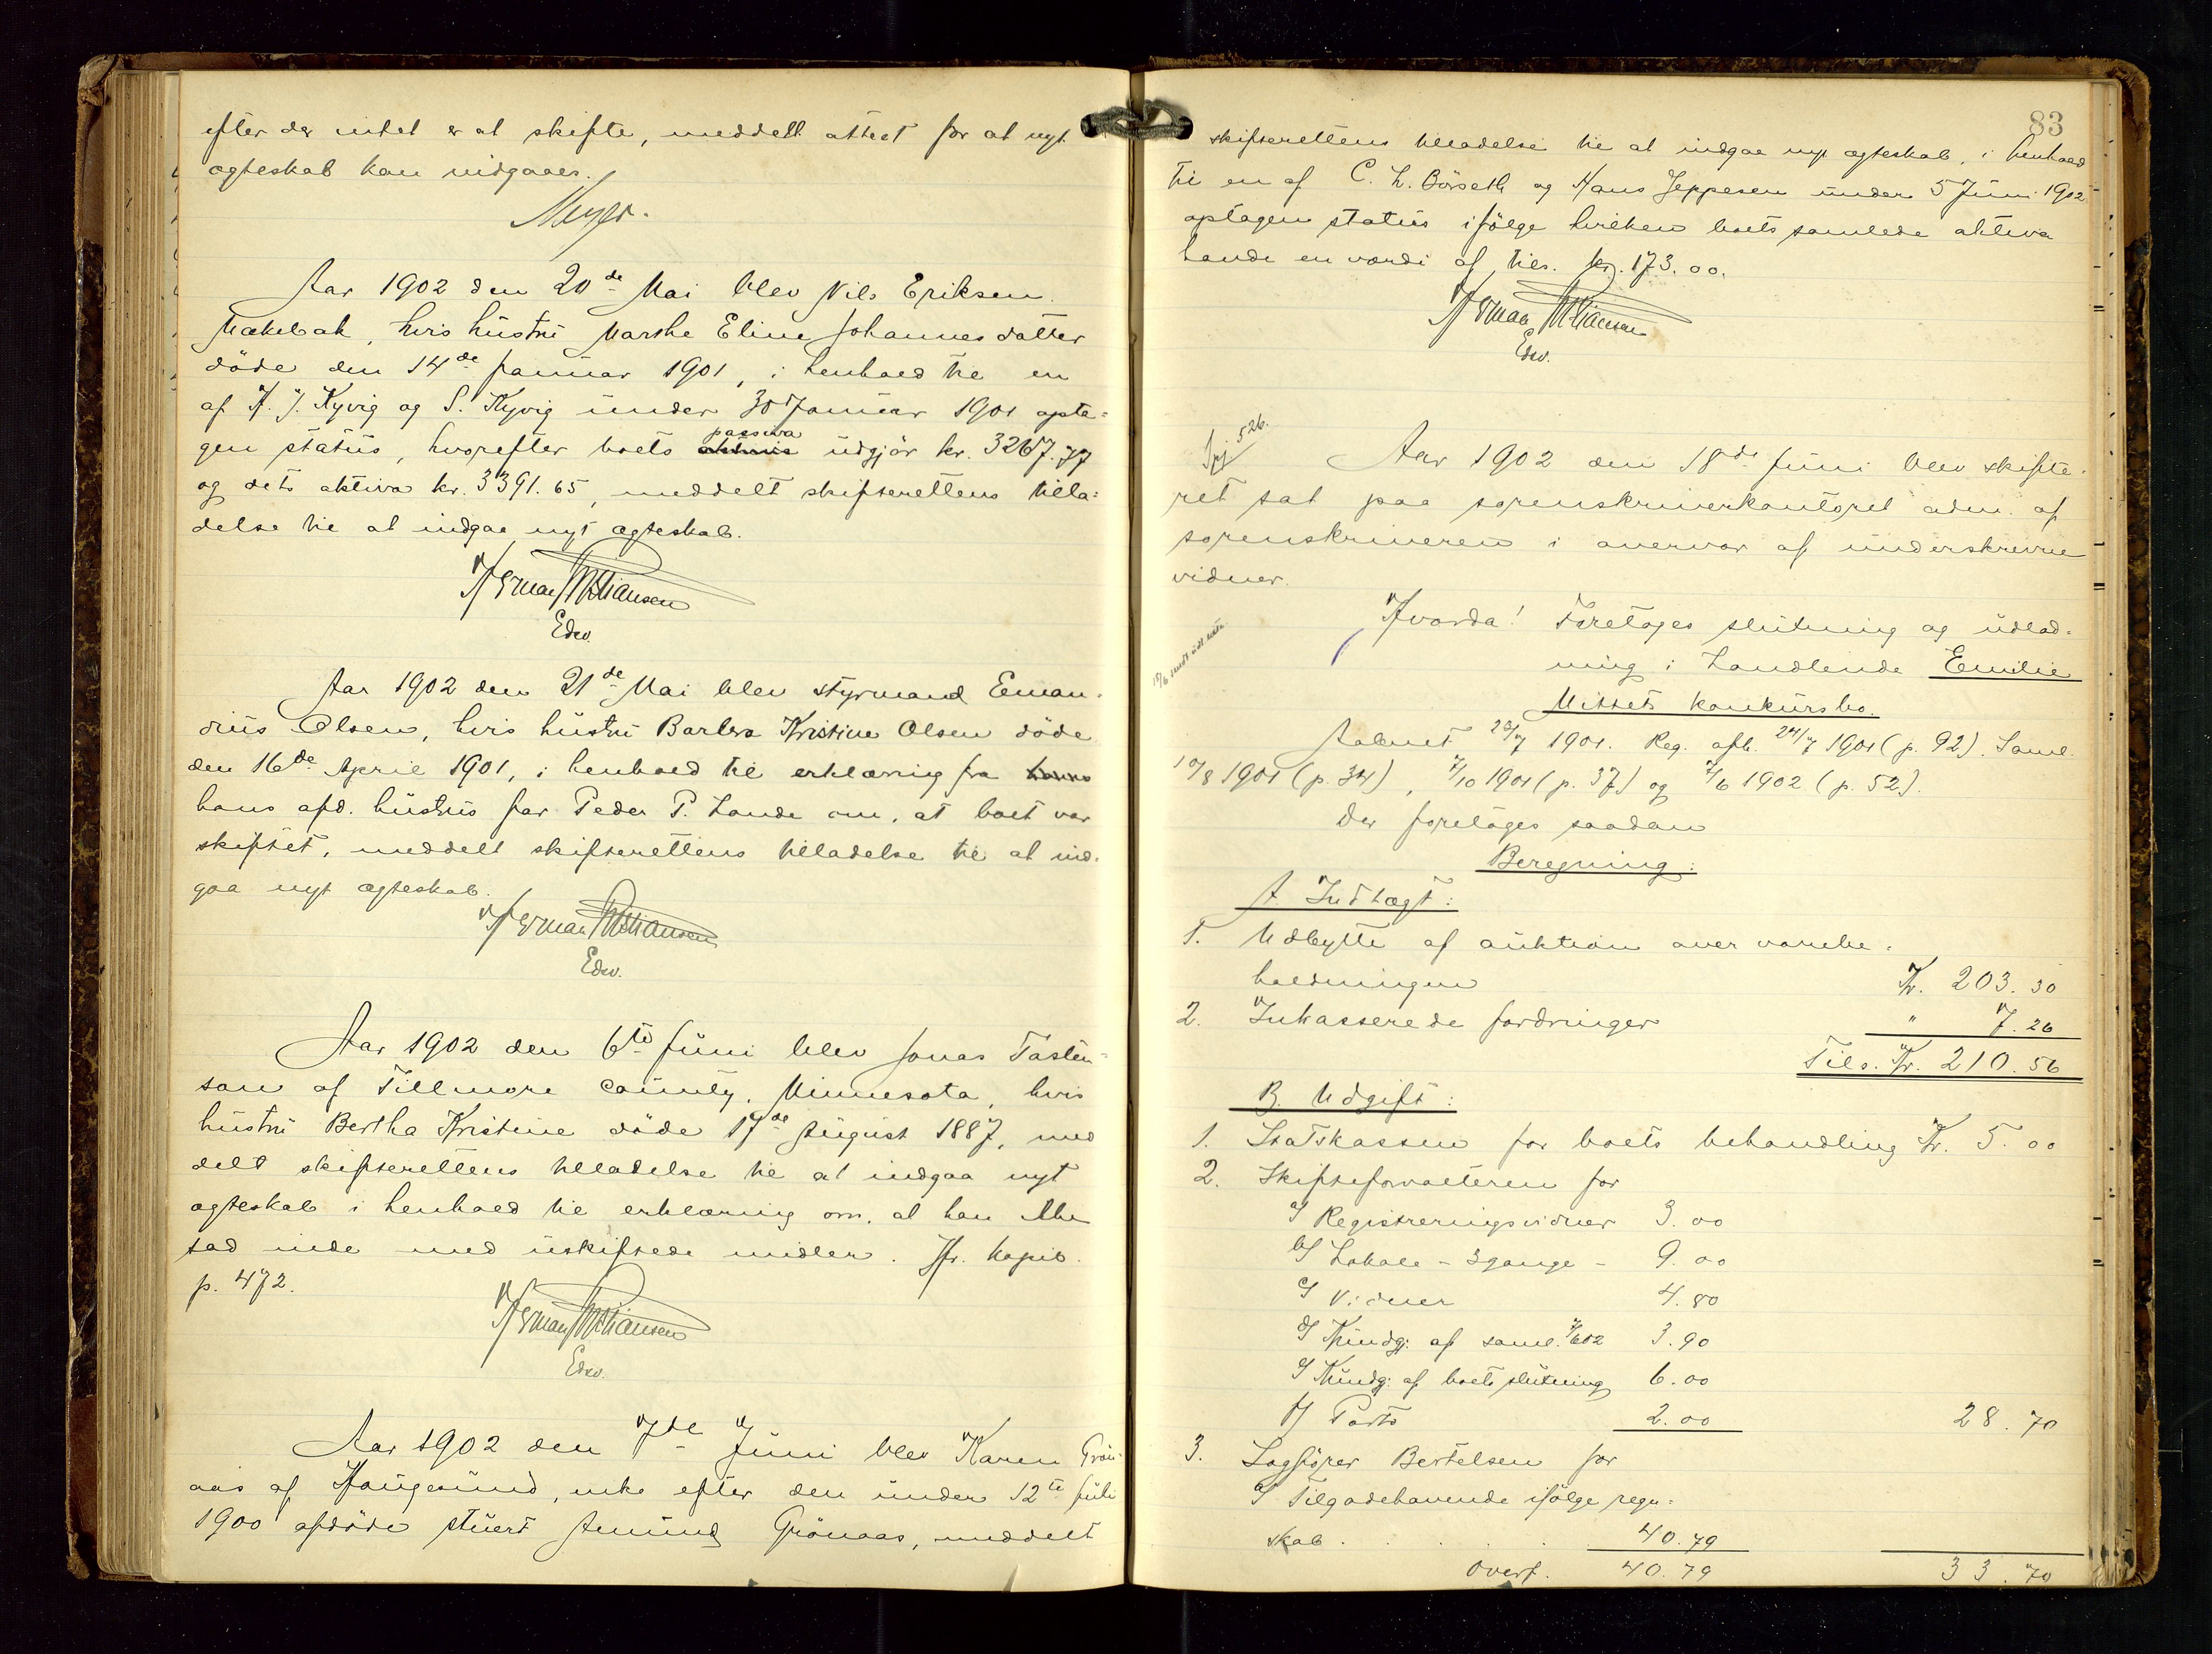 efter der intet er at skifte, meddelt attest for at nyt
ægteskab kan indgaaes.
Meyer.
Aar 1902 den 20de Mai blev Nils Eriksen
Mækebak, hvis hustru Marthe Eline Johannesdatter
døde den 14de Januar 1901, i henhold til en
af H. J. Kyvig og S. Kyvig under 30 Januar 1901 opta=
gen status, hvorefter boets passiva udgjør kr. 3267.77
og dets aktiva kr. 3391.65, meddelt skifterettens tilla=
delse til at indgaa nyt ægteskab.
Herman Christiansen
Edsv.
Aar 1902 den 21de Mai blev styrmand Eman-
drius Olsen, hvis hustru Barbra Kristine Olsen døde
den 16de April 1901, i henhold til erklæring fra
hans afd. hustrus far Peder P. Lande om, at boet var
skiftet, meddelt skifterettens tilladelse til at ind-
gaa nyt ægteskab.
Herman Christiansen
Edsv.
Aar 1902 den 6te Juni blev Jonas Tosten-
son af Fillmore County, Minnesota, hvis
hustru Bertha Kristine døde 17de August 1887, med
delt skifterettens tilladelse til at indgaa nyt
ægteskab i henhold til erklæring om, at han ikke
sad inde med uskiftede midler. Jfr. kopib.
p. 472.
Herman Christiansen
Edsv.
Aar 1902 den 7de Juni blev Karen Grön-
aas af Haugesund, enke efter den under 12te Juli
1900 afdøde stuert Amund Grönaas, meddelt
83
skifterettens tilladelse til at indgaa nyt ægteskab, i henhold
til en af C. L. Börseth og Hans Jeppesen under 5 Juni 1902
optagen status ifølge hvilken boets samlede aktiva
havde en værdi af tils. kr. 173.00.
Herman Christiansen
Edsv.
Spj 526.
Aar 1902 den 18de Juni blev skifte-
ret sat paa sorenskriverkontoret adm. af
sorenskriveren i overvær af underskrevne
vidner.
Hvorda! Foretoges slutning og udlod-
ning i handlende Emilie
Missets konkursbo.
Aabnet 23/7 1901. Reg. afh. 24/7 1901 (p. 92). Saml.
10/8 1901 (p. 34), 7/10 1901 (p. 37) og 7/6 1902 (p. 52).
Der foretoges saadan
Beregning:
A. Indtægt:
1. Udbytte af auktion over varebe-
holdningen Kr. 203.30
2. Inkasserede fordringer " 7.26
Tils. Kr. 210.56
B. Udgift:
1. Statskassen for boets behandling Kr. 5.00
2. Skifteforvalteren for
a/ Registreringsvidner 3.00
b/ Lokale - 3 gange - 9.00
c/ Vidner 4.80
d/ Kundg. af saml. 7/6 02 3.90
e/ Kundg. af boets slutning 6.00
f/ Porto 2.00 28.70
3. Sagfører Bertelsen for
a/ Tilgodehavende ifølge regn=
skab . . . . . 40.79
Overf. 40.79 33.70